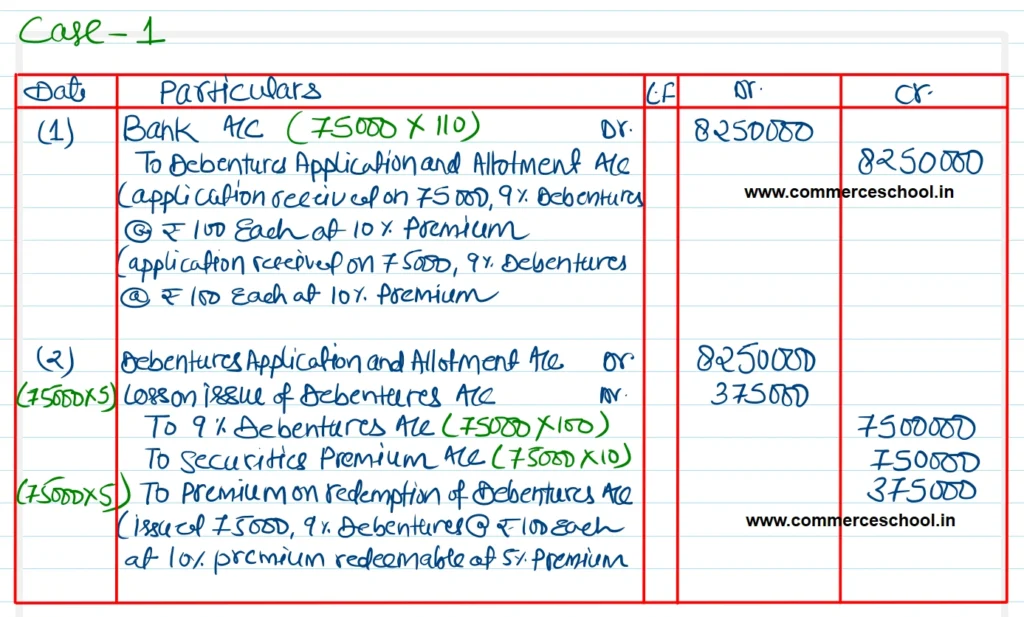 Case - 1
Date Particulars L.F Dr. Cr.
(1) Bank A/C (75000 X 110) Dr. 8250000
To Debentures Application and Allotment A/c 8250000
(application received on 75000, 9% Debentures www.commerceschool.in
@ ₹ 100 Each at 10% Premium
(application received on 75000, 9% Debentures
@ ₹ 100 Each at 10% Premium
(2) Debentures Application and Allotment A/c Dr 8250000
(75000 X 5) Loss on issue of Debentures A/c Dr. 375000
To 9% Debentures A/c (75000 X 100) 7500000
To Securities Premium A/c (75000 X 10) 750000
(75000 X 5) To Premium on redemption of Debentures A/c 375000
(issue of 75000, 9% Debentures @ ₹ 100 Each www.commerceschool.in
at 10% premium redeemable at 5% Premium